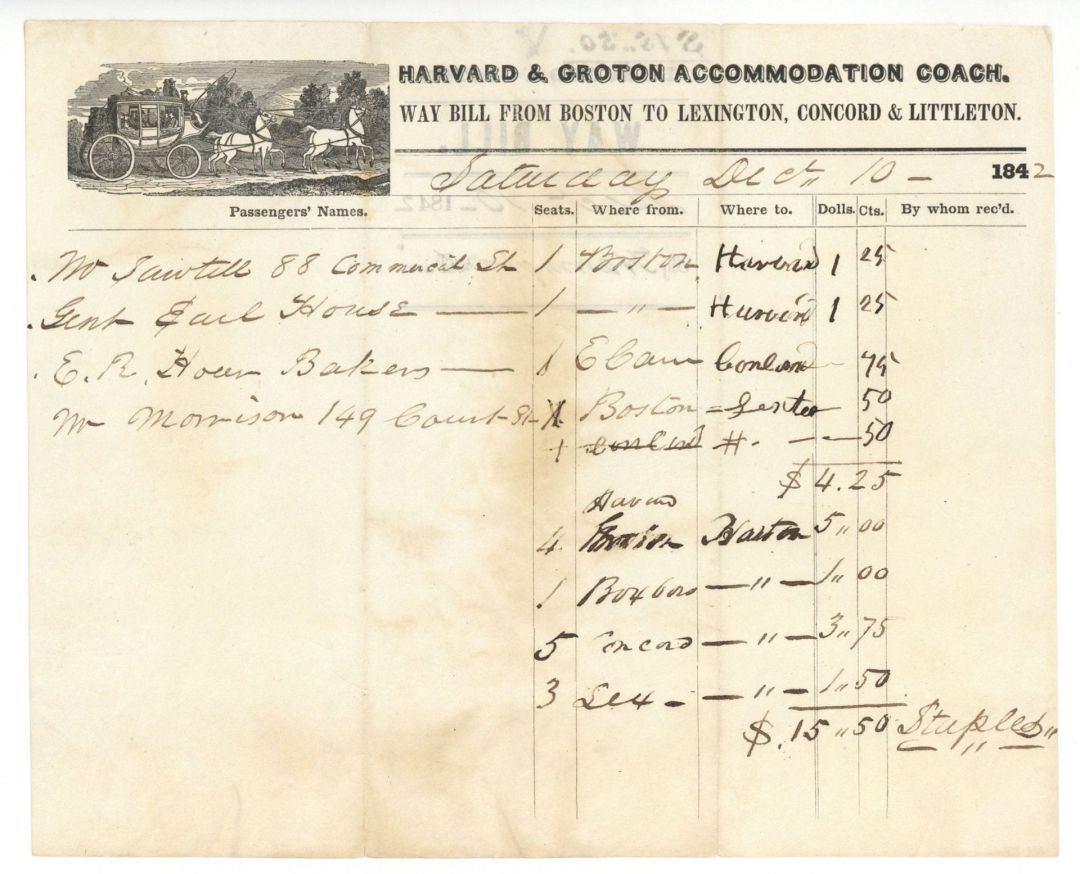 HARVARD & GROTON ACCOMMODATION COACH.
WAY BILL FROM BOSTON TO LEXINGTON, CONCORD & LITTLETON.
Saturday Decr. 10 - 1842
Passengers' Names. Seats. Where from. Where to. Dolls. Cts. By whom rec'd.
Mr Sawtell 88 Commercial St 1 Boston Harvard 1 25
Gent Earl House — 1 — " — Harvard 1 25
E. R. Hoar Bakers — 1 E Cam Concord — 75
Mr Morrison 149 Court St - 1 Boston = 50
1 Concord H. — — 50
$ 4.25
Harvard
4 Groton Boston 5 " 00
1 Boxboro — " — 1 " 00
5 Concord — " — 3 " 75
3 Lex - — " — 1 " 50
$ 15 " 50 Staples "